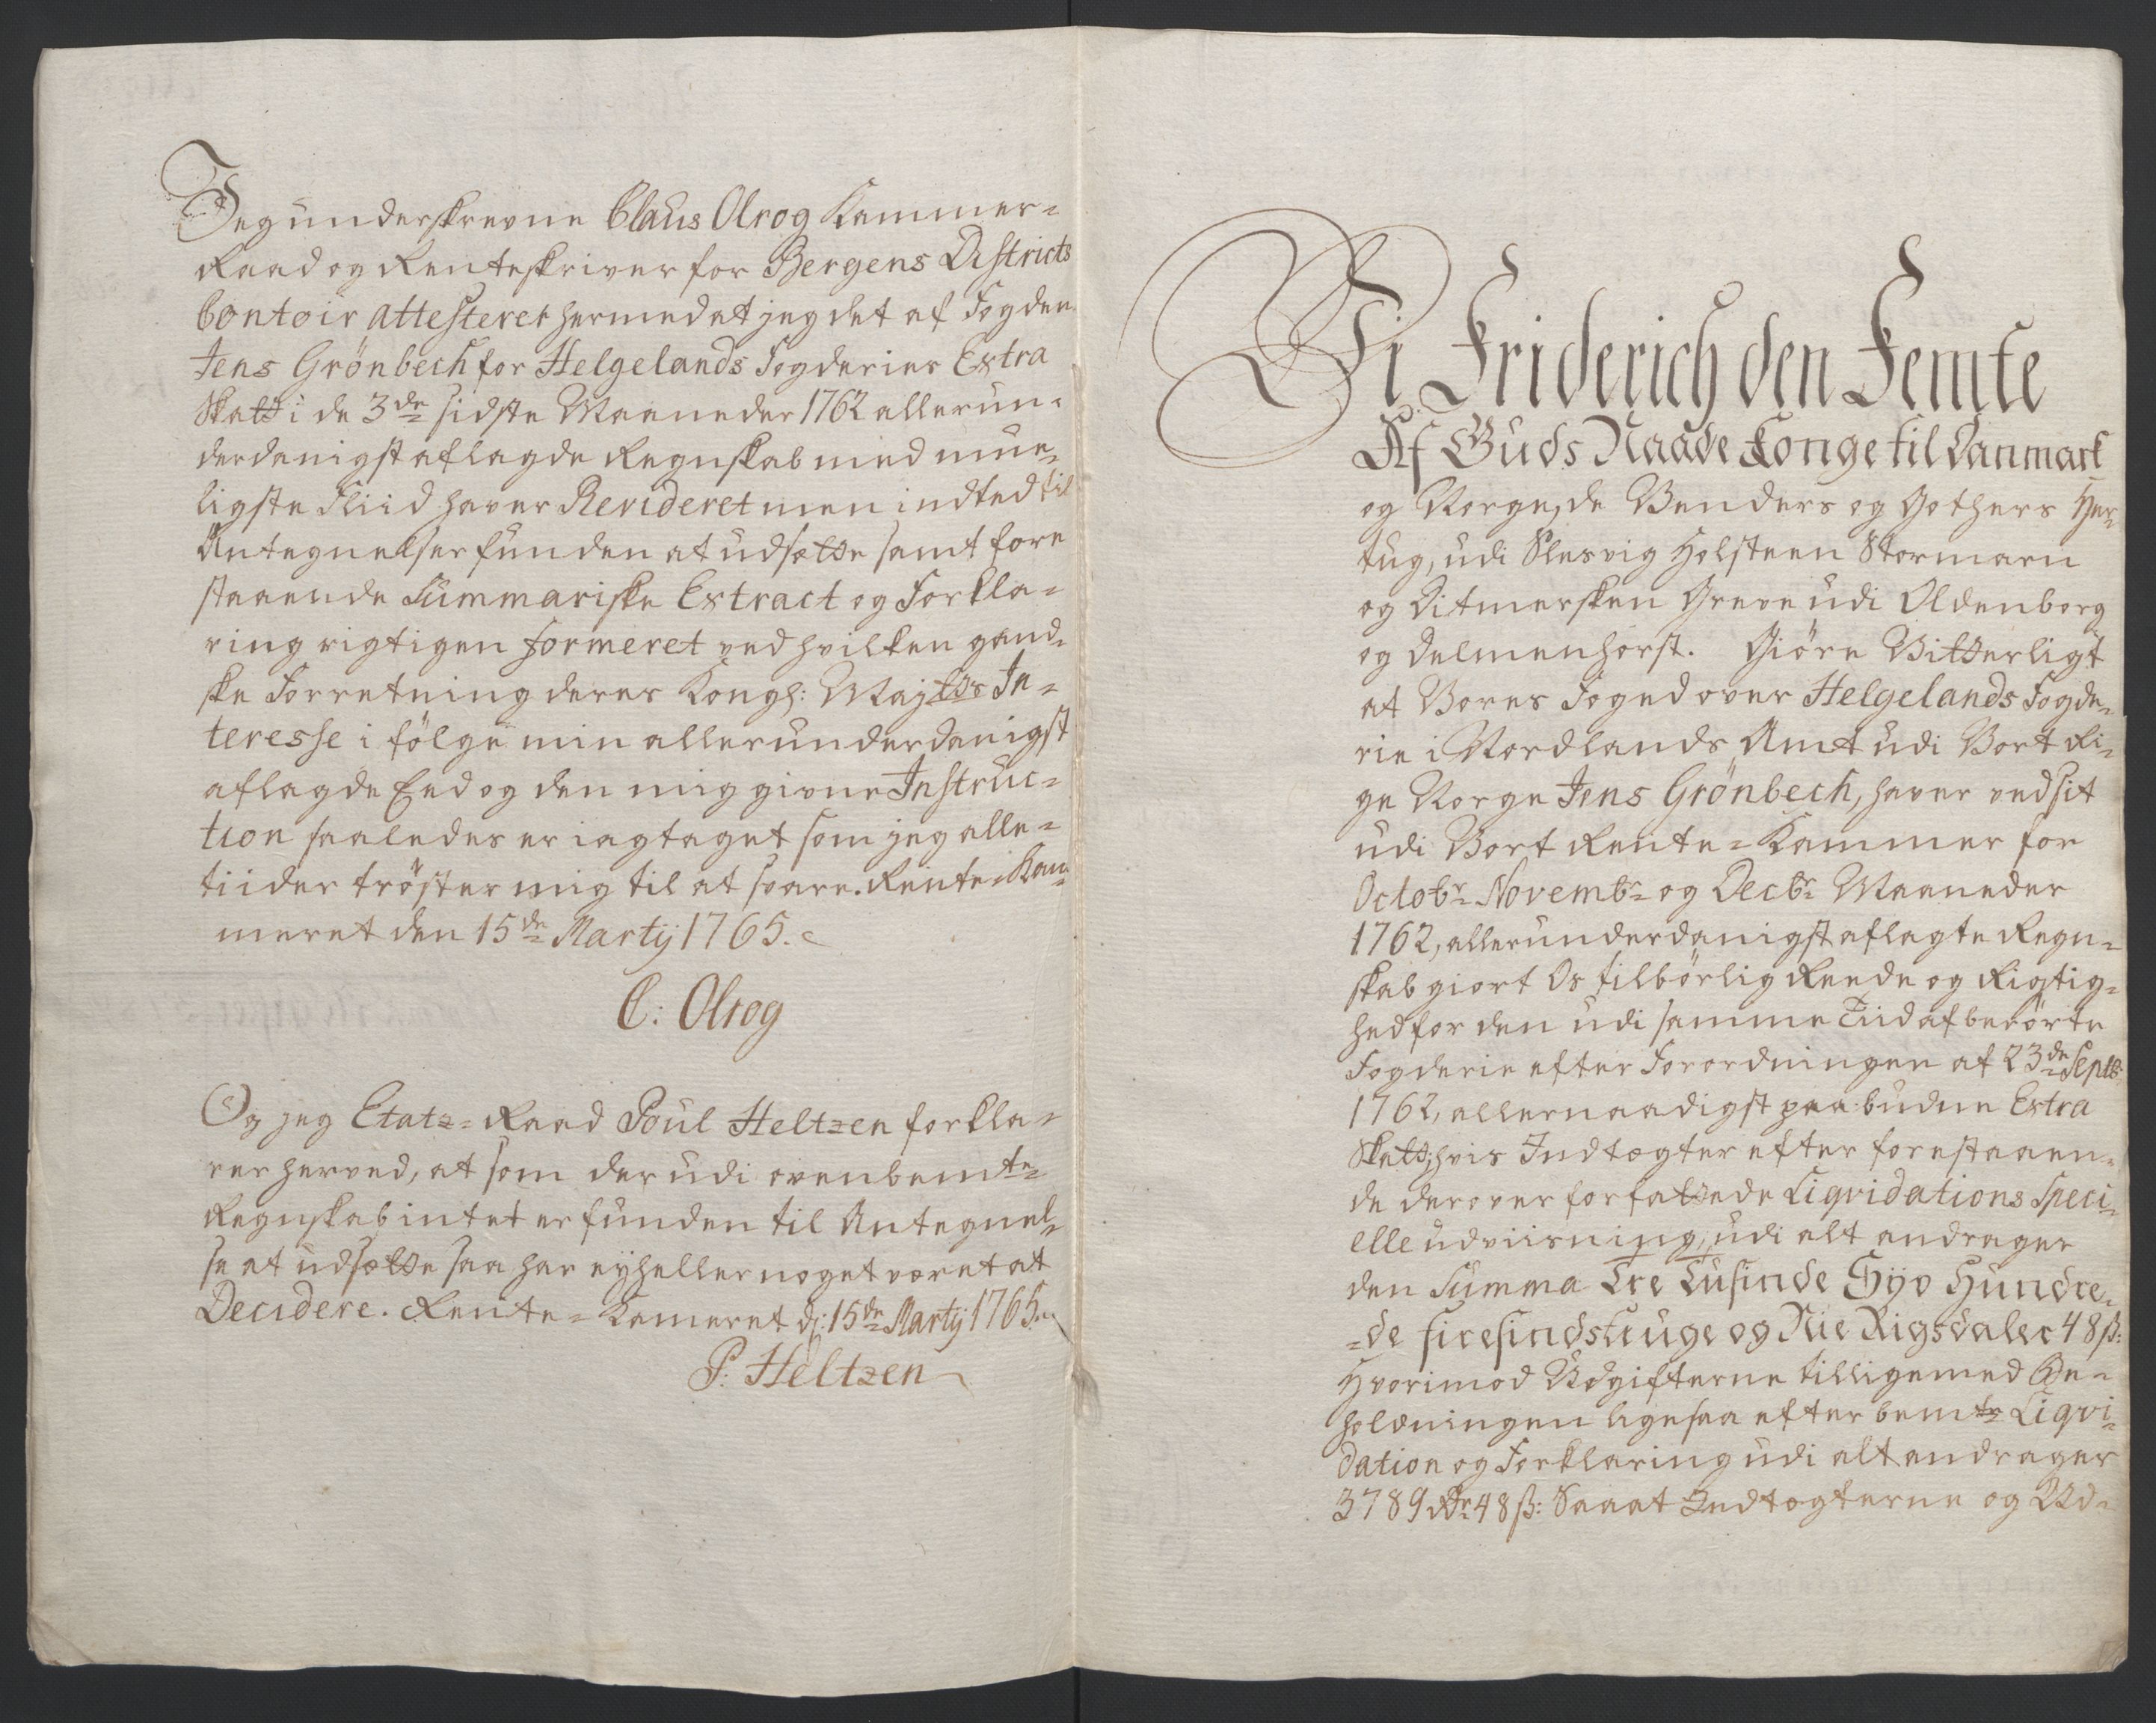 Jeg underskrevne Claus Olrog Kammer=
Raad og Renteskriver for Bergens Districts
Contoir attesterer hermed at jeg det af Fogden
Jens Grönbech for Helgelands Fogderies Extra
Skatt i de 3de sidste Maaneder 1762 allerun=
derdanigst aflagde Regnskab med mue=
ligste Fliid haver Revideret men indted til
Antegnelser funden at udsætte samt fore
staaende Summariske Extract og Forkla=
ring rigtigen formeret ved hvilken gand=
ske Forretning deres Kongl: Majtts In=
teresse i fölge min allerunderdanigst
aflagde Eed og den mig givne Instruc=
tion saaledes er iagtaget som jeg alle=
tiider tröster mig til at svare. Rente=Kam=
meret den 15de Martij 1765.
C: Olrog
Og jeg Etatz=Raad Poul Heltzen forkla=
rer herved, at som der udi ovenbemte
Regnskab intet er funden til Antegnel=
se at udsætte saa har ey heller noget været at
Decidere. Rente=Kameret d: 15de Martij 1765.
P: Heltzen
Vi Friderich den Femte
Af Guds Naade Konge til Danmark
og Norge, de Venders og Gothers Her=
tug, udi Slesvig Holsteen Stormarn
og Ditmersken Greve udi Oldenborg
og Delmenhorst. Giöre Vitterligt
at Vores Foged over Helgelands Fogde=
rie i Nordlands Amt udi Vort Ri=
ge Norge Jens Grönbech, haver ved sit
udi Vort Rente=Kammer for
Octobr Novembr og Decbr Maaneder
1762, allerunderdanigst aflagte Regn=
skab giort Os tilbörlig Reede og Rigtig=
hed for den udi samme Tiid af berörte
Fogderie efter Forordningen af 23de Septb:
1762, allernaadigst paabudne Extra
Skatt, hvis Indtægter efter forestaaen=
de derover forfattede Liqvidations Speci=
elle udviisning, udi alt andrager
den Summa Tre Tusinde Syv Hundre=
=de firesindstiuge og Nie Rigsdaler 48 ß:
Hvorimod Udgifterne tilligemed Be=
holdningen ligesaa efter bemte Liqvi=
dation og Forklaring udi alt andrager
3789 Rdr 48 ß: Saa at Indtægterne og Ud=